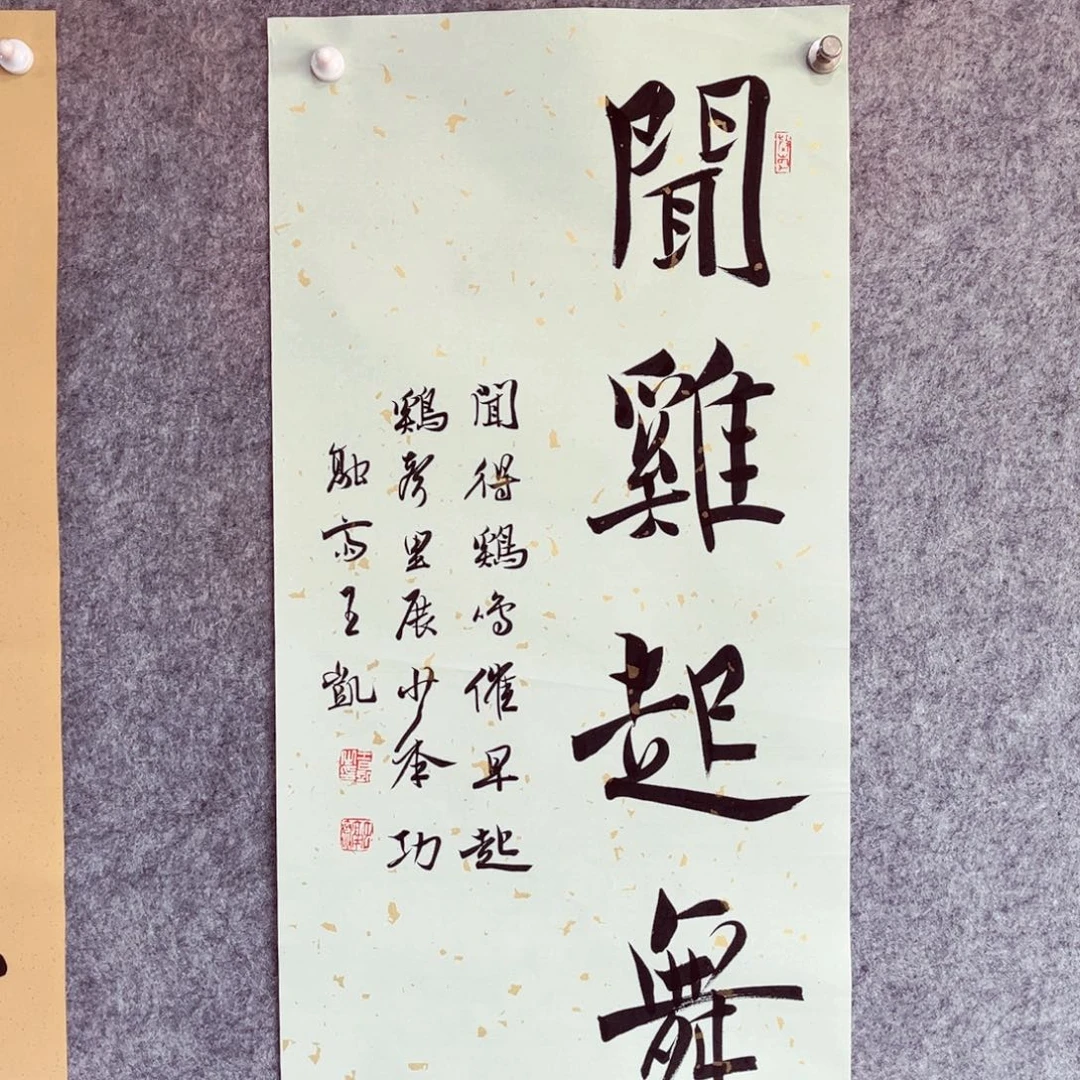 聞雞起舞
聞得鷄鳴催早起
鷄聲里展少年功
馳斋王凱